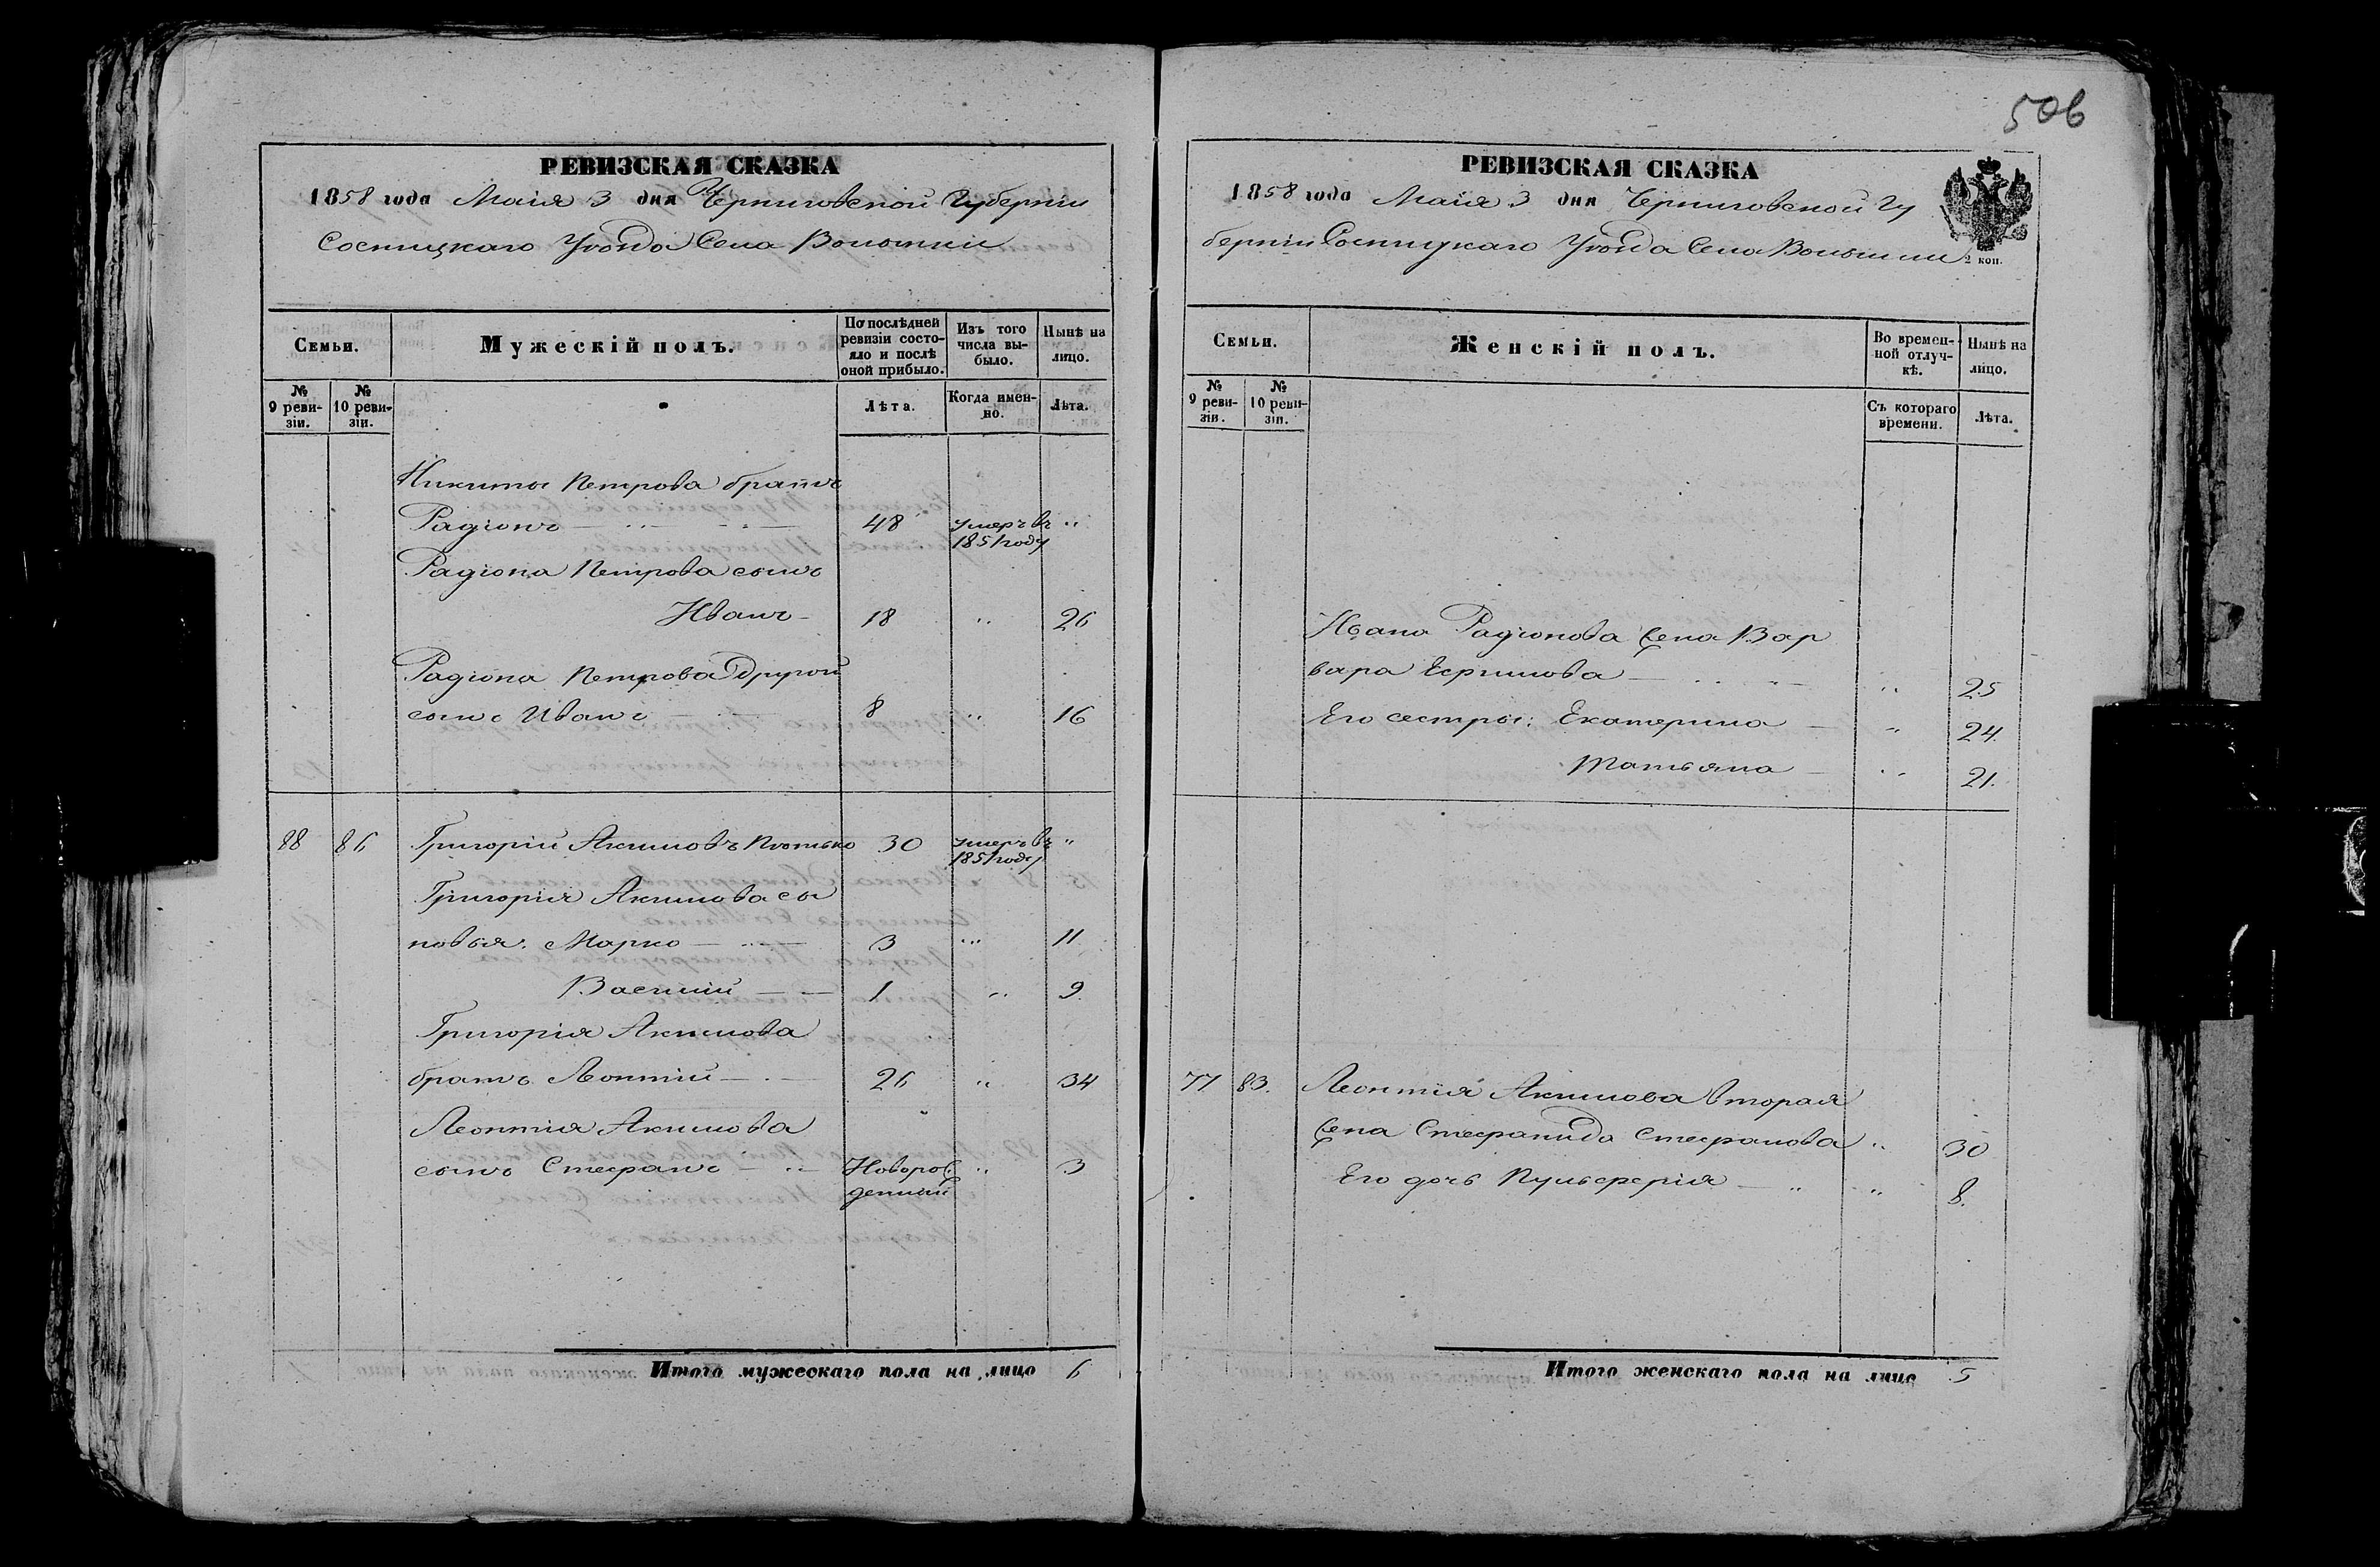 506
РЕВИЗСКАЯ СКАЗКА
1858 года Маія 3 дня Черниговской Губерніи
Сосницкаго Уѣзда Села Волынки
Семьи.
Мужескій полъ.
По послѣдней ревизіи состояло и послѣ оной прибыло.
Изъ того числа выбыло.
Нынѣ на лицо.
№ 9 ревизіи.
№ 10 ревизіи.
Лѣта.
Когда именно.
Лѣта.
Никиты Петрова братъ
Радіонъ 48 умеръ въ 1851 году "
Радіона Петрова сынъ
Иванъ 18 " 26
Радіона Петрова Другой
сынъ Иванъ 8 " 16
88 86 Григорій Акимовъ 30 умеръ въ 1851 году "
Григорія Акимова сы
новья: Марко 3 " 11
Василій 1 " 9
Григорія Акимова
братъ Леонтій 26 " 34
Леонтія Акимова
сынъ Стефанъ Новорож " 3
денный
Итого мужескаго пола на лицо 6
РЕВИЗСКАЯ СКАЗКА
1858 года Маія 3 дня Черниговской Гу
берніи Сосницкаго Уѣзда Села Волынки
2 коп.
Семьи.
Женскій полъ.
Во временной отлучкѣ.
Нынѣ на лицо.
№ 9 ревизіи.
№ 10 ревизіи.
Съ котораго времени.
Лѣта.
Ивана Радіонова жена Вар
вара " 25
Его сестры: Екатерина " 24
Татьяна " 21.
77 83. Леонтія Акимова вторая
жена Стефанида Стефанова " 30
Его дочь Пульферія " 8.
Итого женскаго пола на лицо 5